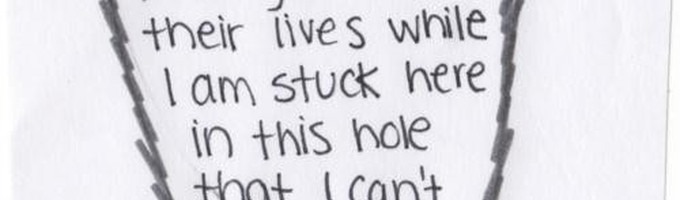 their lives while
I am stuck here
in this hole
that I can't